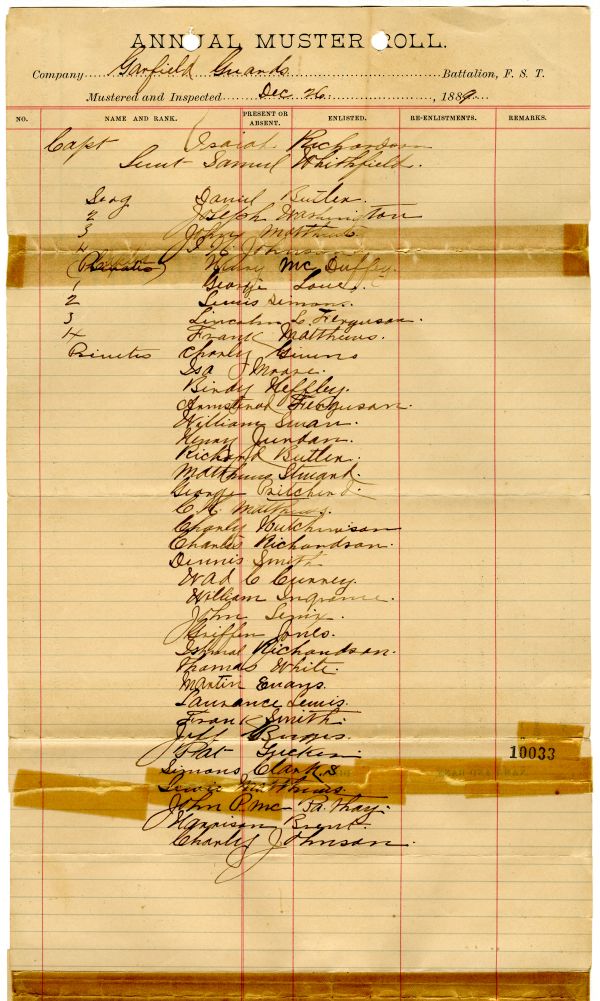 ANNUAL MUSTER ROLL.
Company Garfield Guards Battalion, F. S. T.
Mustered and Inspected Dec 26 , 1889
NO. NAME AND RANK. PRESENT OR ABSENT. ENLISTED. RE-ENLISTMENTS. REMARKS.
Capt Isaiah Richardson
Lieut Samuel Whithfield.
Serg Daniel Butler.
2 Joseph Washington
3 John Matthews
4 Johnson
Henry Mc Duffey.
1 George Love.
2 Lewis Simons.
3 Lincoln L. Ferguson.
4 Frank Matthews.
Privates Charley
Isa J Moore.
Bindy Heffley.
Armstead Ferguson.
William Swan.
Henry Jundan.
Richard Butler.
Matthews Steward.
George Pritchend.
C. H. Matthews.
Charly Hutchinson
Charles Richardson.
Dennis Smith
Wad C Cunney.
William Ingrame.
John
Griffen Jones.
Ishmal Richardson.
Thomas White.
Martin Evans.
Laurance Lewis.
Frank Smith.
Jeff
Plat
Simons Clark
Lewis Matthews.
John P. Mc
Harrison Brent.
Charly Johnson.
10033